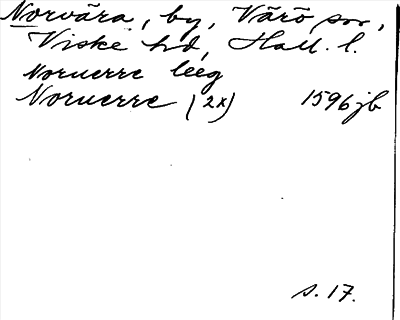 Norvära, by, Värö sn,
Viske hd, Hall. l.
Noruerre leeg
Noruerre (2x) 1596 jb
s. 17.